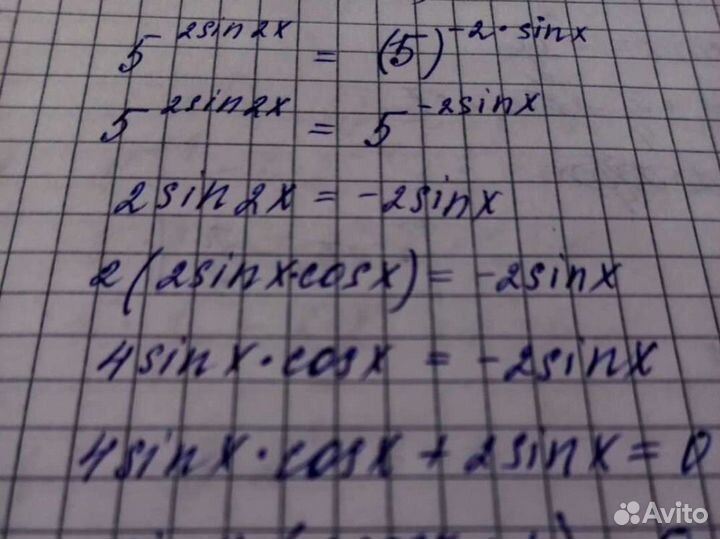 5^2sin2x = (5)^-2·sinx
5^2sin2x = 5^-2sinx
2sin2x = -2sinx
2(2sinx·cosx) = -2sinx
4sinx·cosx = -2sinx
4sinx·cosx + 2sinx = 0
Avito